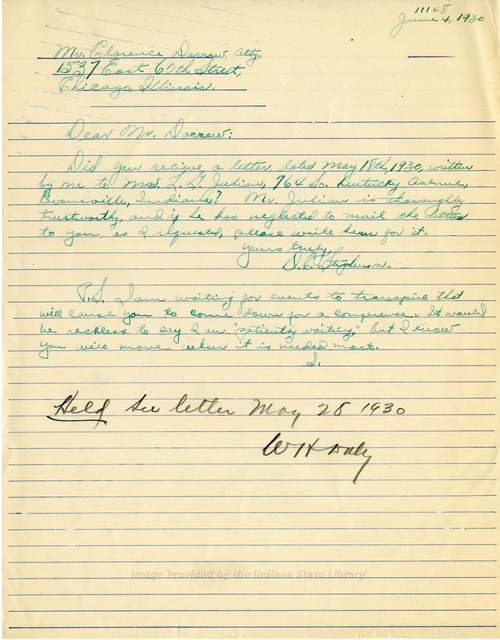 11148
June 4, 1930
Mr. Clarence Darrow, Atty,
1537 East 60th Street,
Chicago, Illinois.
Dear Mr. Darrow:
Did you recieve a letter, dated May 18th, 1930, written
by me to Mr. L. G. Julian, 764 So. Kentucky Avenue,
Evansville, Indiana? Mr. Julian is thoroughly
trustworthy, and if he has neglected to mail the letter
to you as I requested, please write him for it.
Yours truly,
D. C. Stephenson.
P.S. I am waiting for events to transpire that
will cause you to come down for a conference. It would
be reckless to say I am "patiently waiting," but I know
you will move when it is needed most.
S.
Held see letter May 28 1930
W H Daly
Image Provided by the Indiana State Library